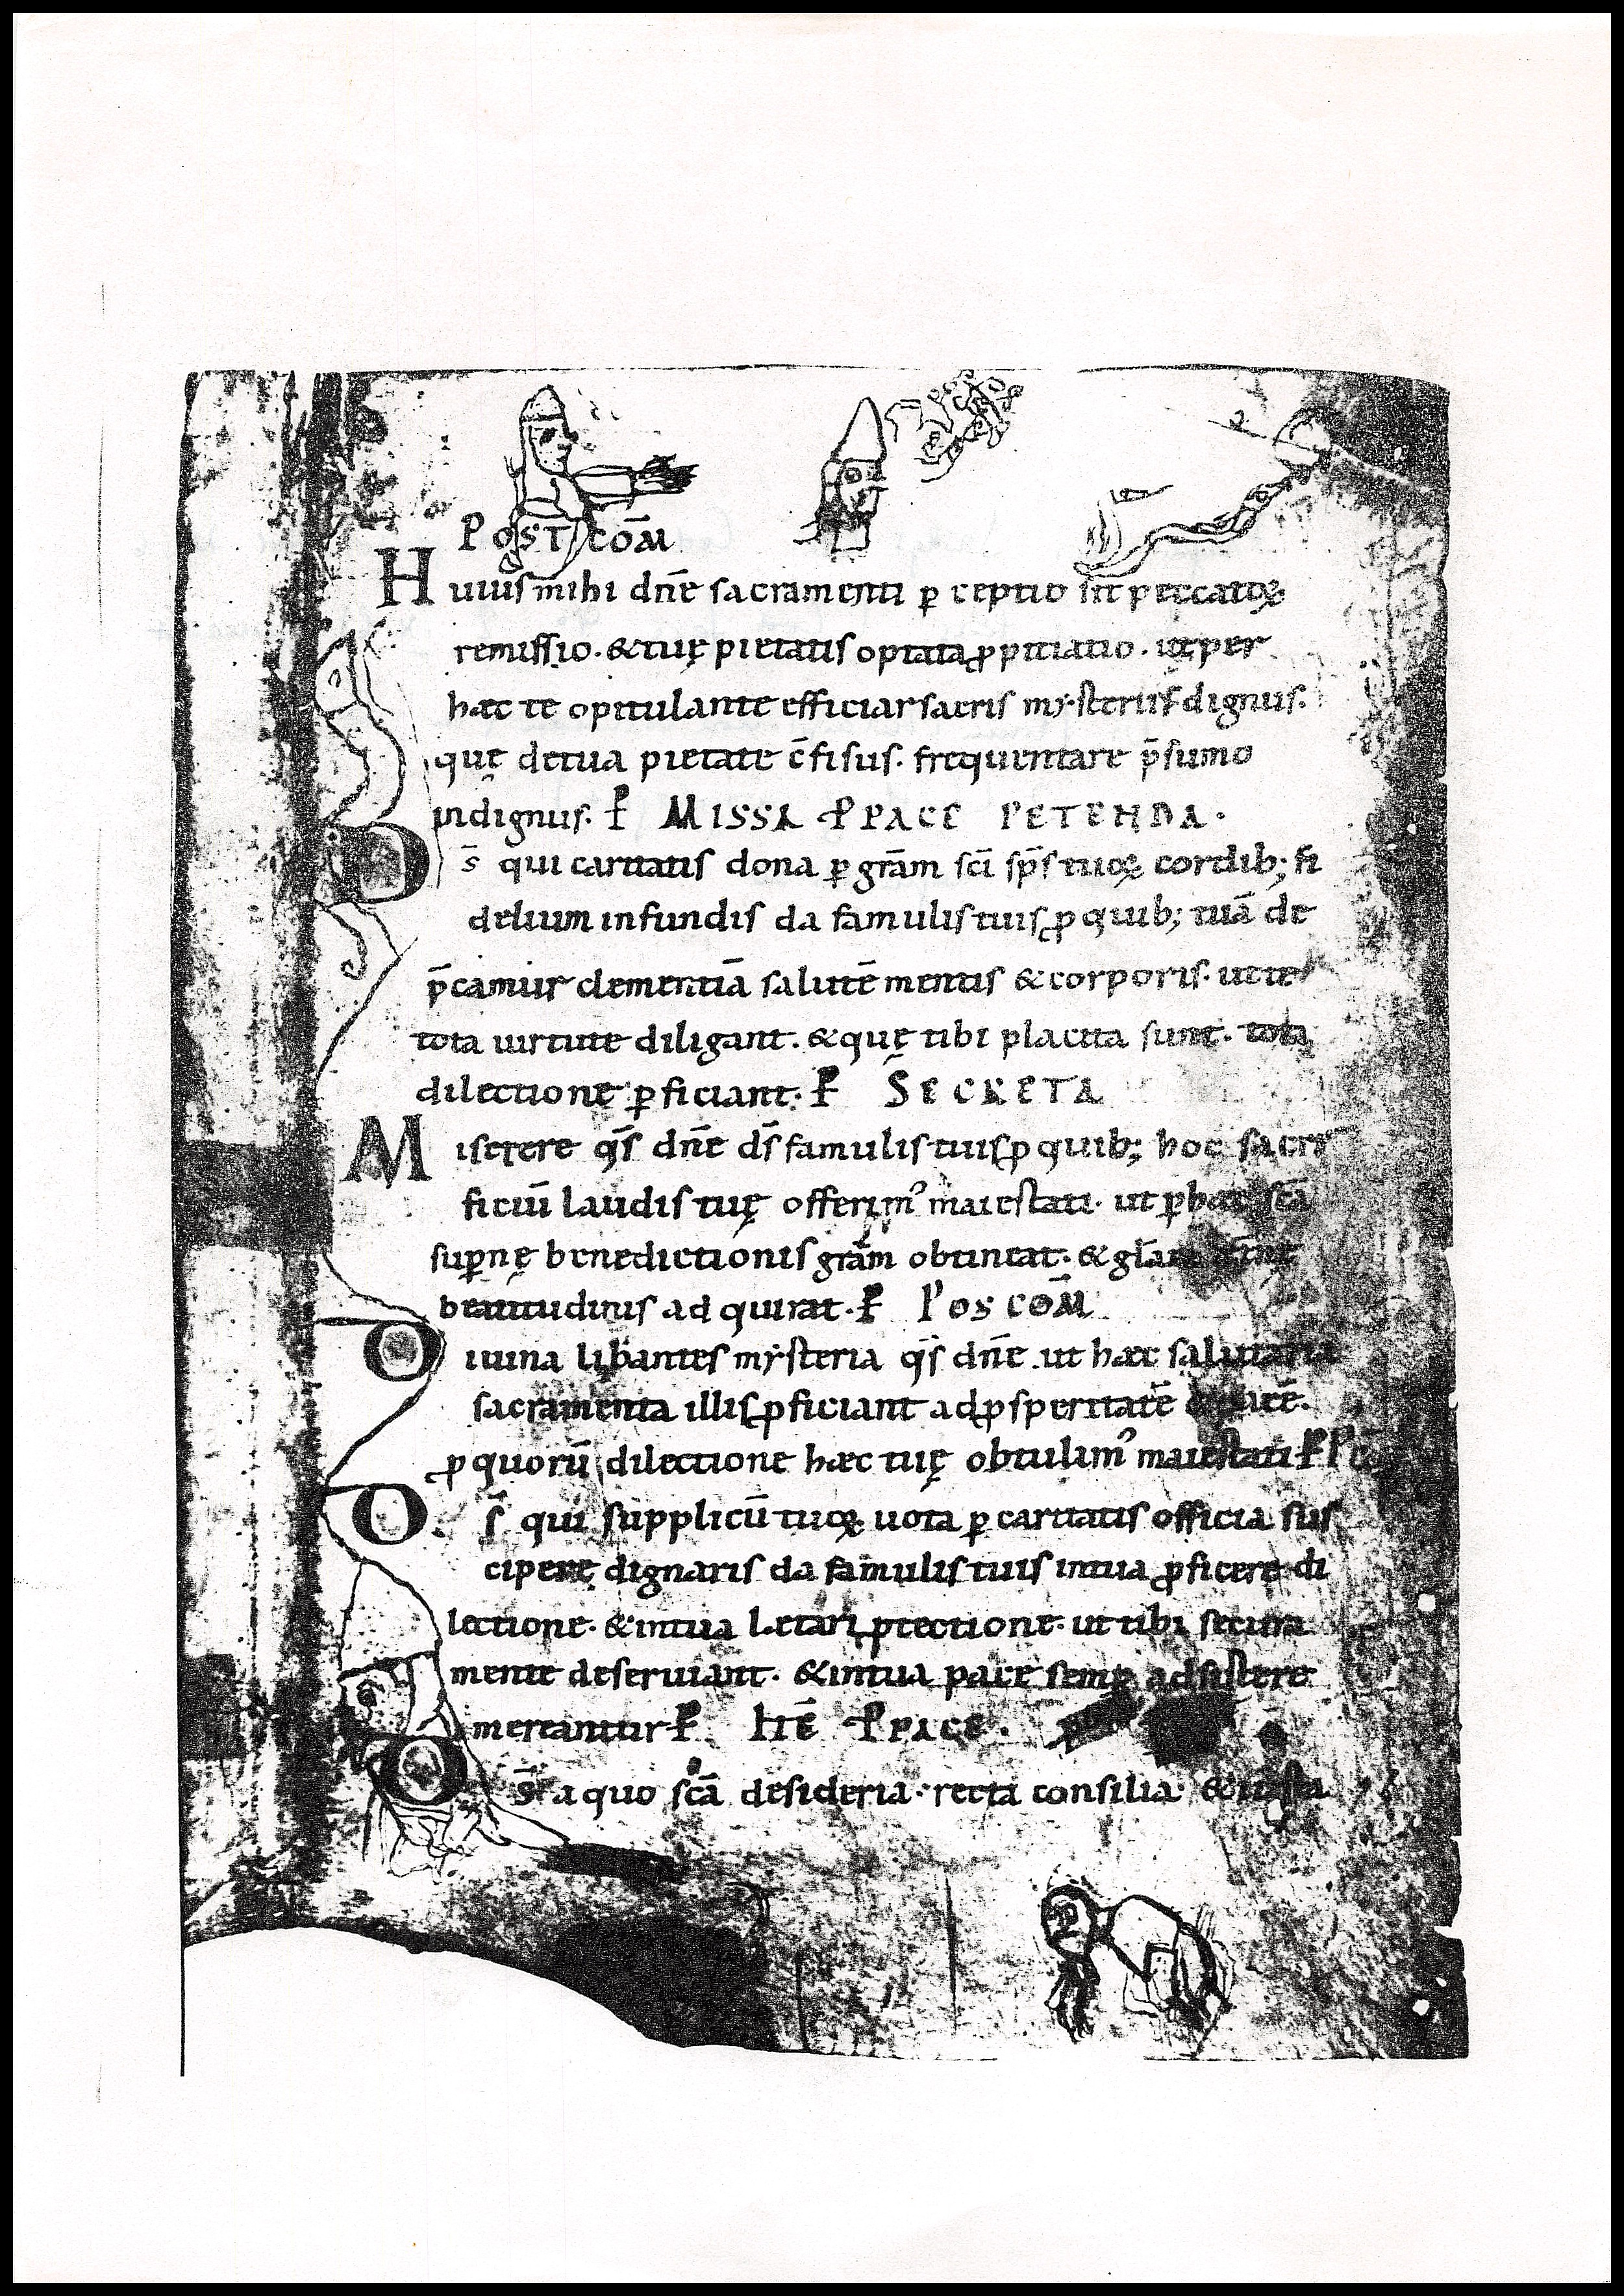 POST COM̄
Huiuſ mihi dn̄e sacramenti ꝑceptio ſit peccatoꝝ
remiſſio. & tuę pietatiſ optata ꝓpitiatio. ut per
hæc te opitulante efficiar sacriſ myſteriiſ dignuſ.
quę de tua pietate c̄fiſuſ. frequentare p̄sumo
indignuſ. ꝑ MISSA P PACE PETENDA.
D s̄ qui caritatiſ dona ꝑ gr̄am ſc̄i ſp̄ſ tuoꝝ cordib; fi
delium infundiſ da famuliſ tuiſ ꝓ quib; tuā de
p̄camur clementiā ſalutē mentiſ & corporiſ. ut te
tota uirtute diligant. & quę tibi placita ſunt. tota
dilectione ꝑficiant. ꝑ SECRETA
Miserere qſ̄ dn̄e dſ̄ famuliſ tuiſ ꝓ quib; hoc sacri
ficiū laudiſ tuę offerim᾽ maieſtati. ut ꝑ hæc ſc̄a
ſuꝑnę benedictioniſ gr̄am obtineat. & gl̄am
beatitudiniſ adquirat. ꝑ POSCOM̄
Diuina libanteſ myſteria qſ̄ dn̄e ut hæc salutaria
ſacramenta illiſ ꝓficiant ad ꝓſperitatē & pacē.
ꝓ quorū dilectione hæc tuę obtulim᾽ maieſtati ꝑ
D ſ̄ qui ſupplicū tuoꝝ uota ꝑ caritatiſ officia ſuſ
cipere dignariſ da famuliſ tuiſ in tua ꝓficere di
lectione. & in tua lætari ꝓtectione. ut tibi secura
mente deſeruiant. & in tua pace ſemꝑ adſiſtere
mereantur ꝑ ITĒ P PACE.
D s̄ a quo ſc̄a deſideria. recta conſilia & iuſta